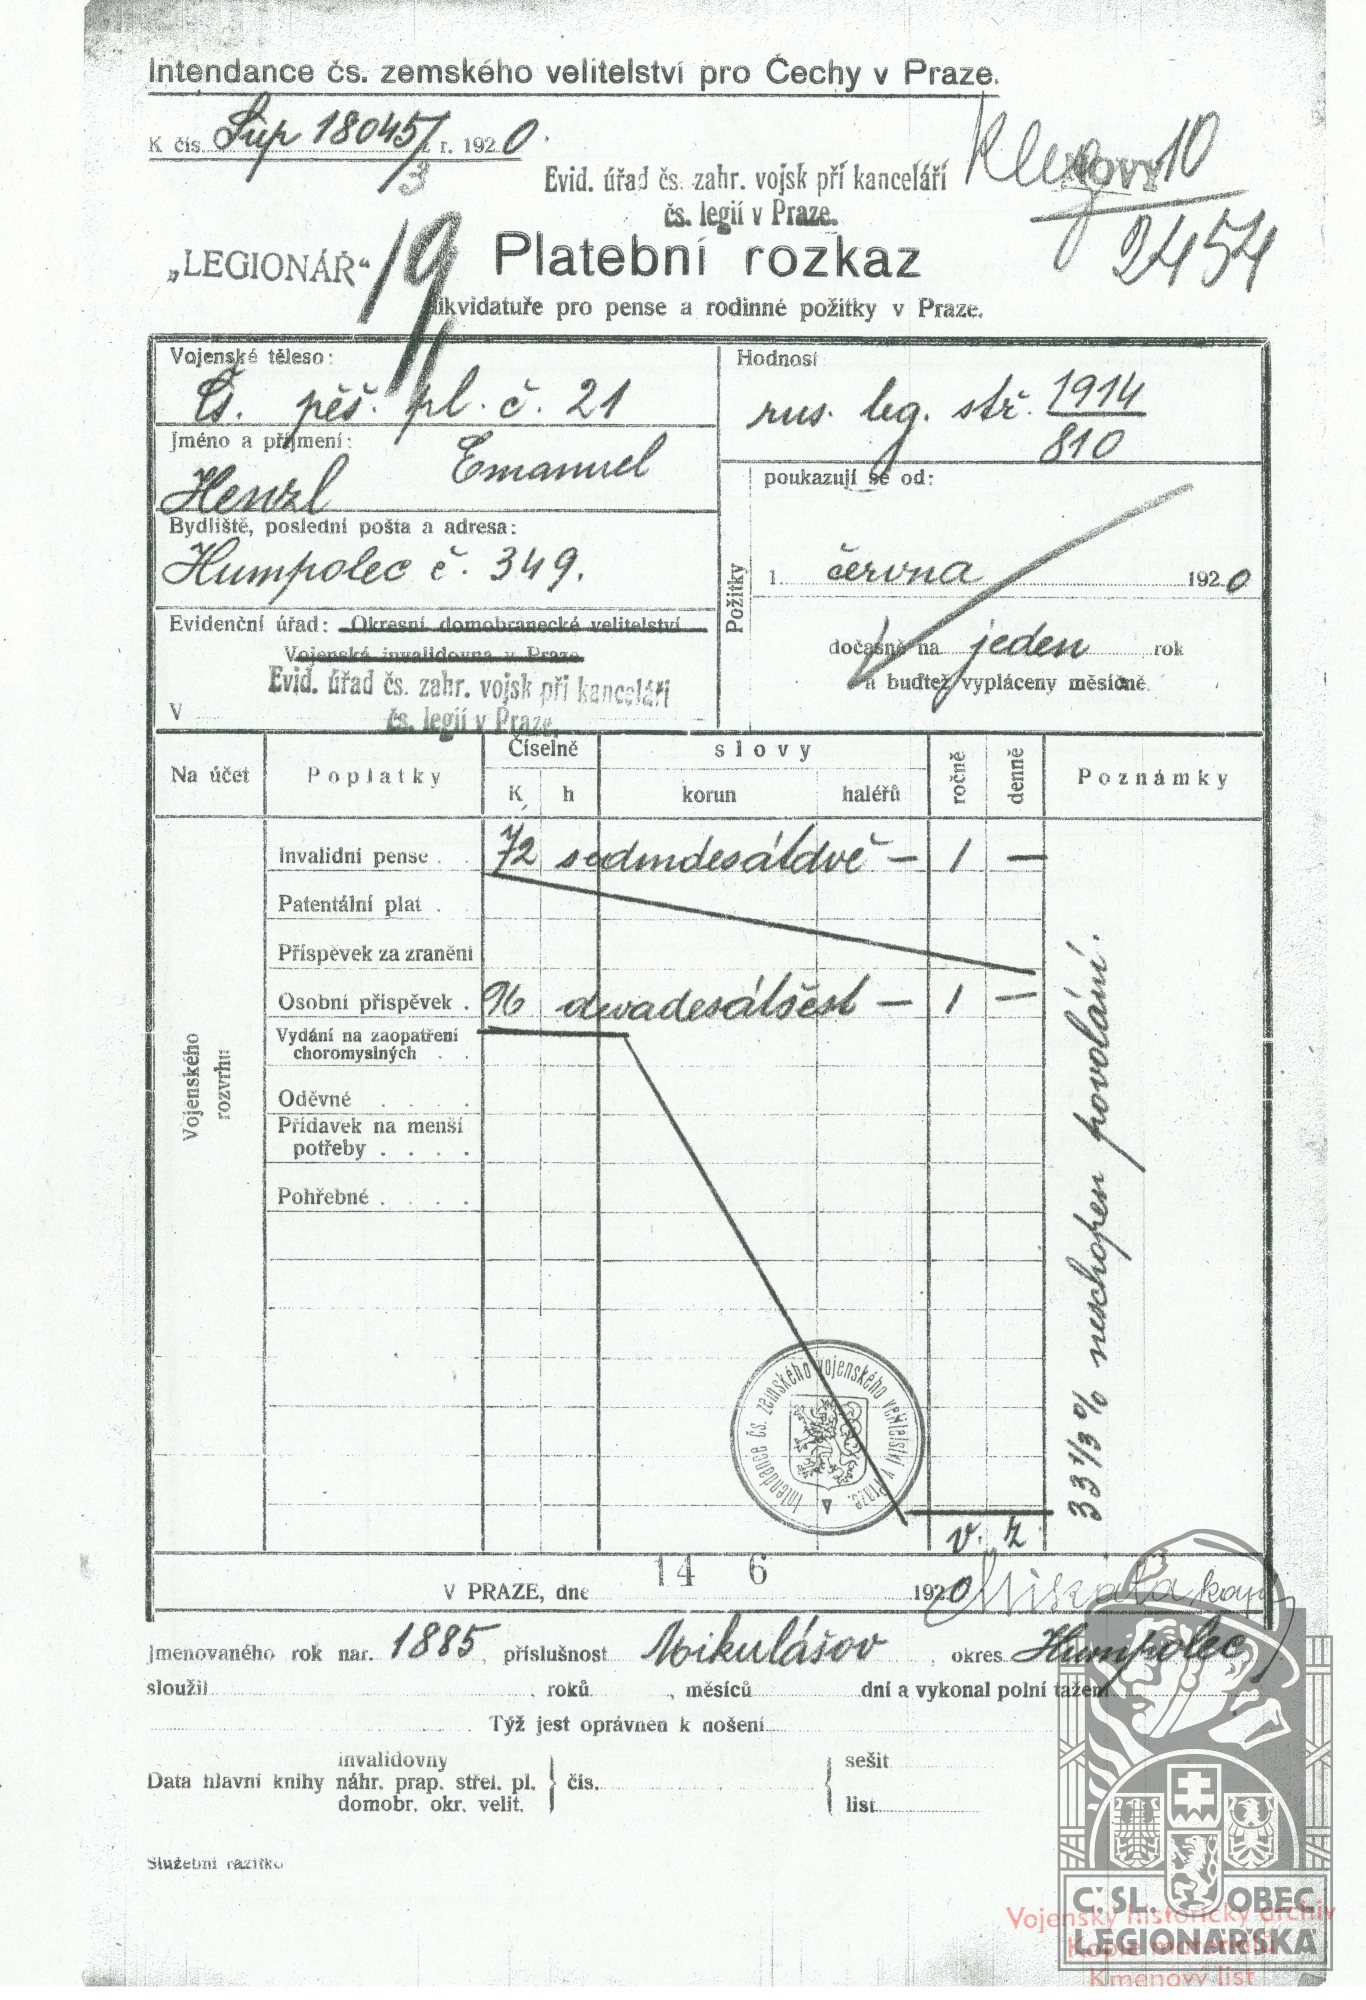 Intendance čs. zemského velitelství pro Čechy v Praze.
K čís. Súp 18045/3 z r. 1920.
Evid. úřad čs. zahr. vojsk při kanceláři
čs. legií v Praze.
NOVÝ 10
2454
„LEGIONÁŘ“ 19
Platební rozkaz
likvidatuře pro pense a rodinné požitky v Praze.
Vojenské těleso:
Čs. pěš. pl. č. 21
Hodnost
rus. leg. stř. 1914
810
Jméno a příjmení:
Henzl Emanuel
Bydliště, poslední pošta a adresa:
Humpolec č. 349.
Požitky
poukazují se od:
1. června 1920
dočasně na jeden rok
a buďtež vypláceny měsíčně.
Evidenční úřad: Okresní domobranecké velitelství
Vojenská invalidovna v Praze
Evid. úřad čs. zahr. vojsk při kanceláři
čs. legií v Praze.
V
Na účet
Poplatky
Číselně
K h
slovy
korun haléřů
ročně
denně
Poznámky
Vojenského rozvrhu
Invalidní pense . . 72 sedmdesátdvě — 1 —
Patentální plat .
Příspěvek za zranění
Osobní příspěvek . 96 devadesátšest — 1 —
Vydání na zaopatření
choromyslných . .
Oděvné . . . .
Přídavek na menší
potřeby . . . .
Pohřebné . . . .
33 1/3 % neschopen povolání.
Intendance čs. zemského vojenského velitelství v Praze.
v. z.
V PRAZE, dne 14 6 1920
Jmenovaného rok nar. 1885, příslušnost Mikulášov, okres Humpolec
sloužil , roků , měsíců dní a vykonal polní tažení
Týž jest oprávněn k nošení
invalidovny
Data hlavní knihy náhr. prap. střel. pl. čís.
domobr. okr. velit.
sešit
list
Služební razítko
Č.SL. OBEC
LEGIONÁŘSKÁ
Vojenský historický archiv
Kopie materiálu
Kmenový list